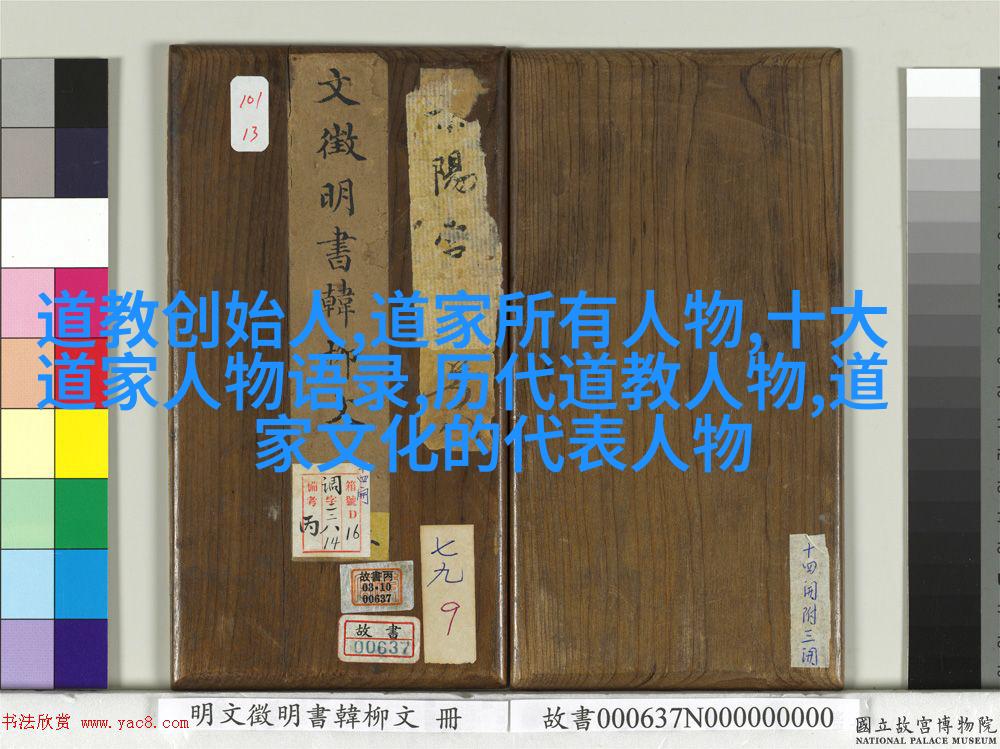 道教创始人,道家所有人物,十大
道家人物语录,历代道教人物,道
家文化的代表人物
101
13
文徵明書韓柳文
陽宮
箱號D
16
備考
丙
调字三八
14
第四開
故書丙
03·10
00637
故書
00637
七九
9
十四開附三開
书法欣赏 www.yac8.com
明文徵明書韓柳文 冊
故書000637N000000000
國立故宮博物院
NATIONAL PALACE MUSEUM